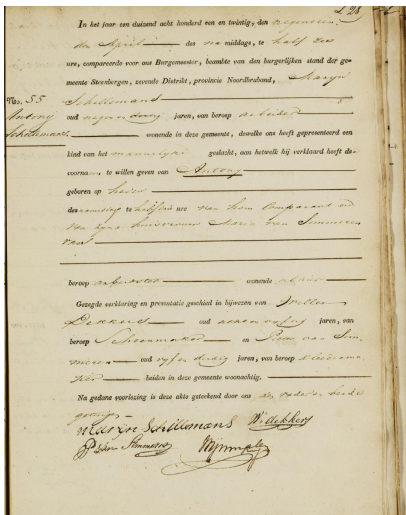 No. 55
Antony
Schellemans
In het jaar een duizend acht honderd een en twintig, den negentien
den April des na middags, te half zes
ure, compareerde voor ons Burgemeester, beambte van den burgerlijken stand der ge-
meente Steenbergen, zevende Distrikt, provincie Noordbraband, Maryn
Schellemans
oud negen dertig jaren, van beroep arbeider
wonende in deze gemeente, dewelke ons heeft gepresenteerd een
kind van het mannelyke geslacht, aan hetwelk hij verklaard heeft de
voornaam te willen geven van Antony
geboren op heden
des namiddag te ure van hem Comparant en
van zyne huisvrouw Maria van Simmeren
beroep wonende alhier
Gezegde verklaring en presentatie geschied in bijwezen van Willem
Dekkers oud jaren, van
beroep Schoenmaker en van Sim-
meren oud vyf en dertig jaren, van beroep Kleederma-
ker beiden in deze gemeente woonachtig.
Na gedane voorlezing is deze akte geteekend door ons den vader en beide
getuigen
Maryn Schillemans W Dekkers
van Simmeren